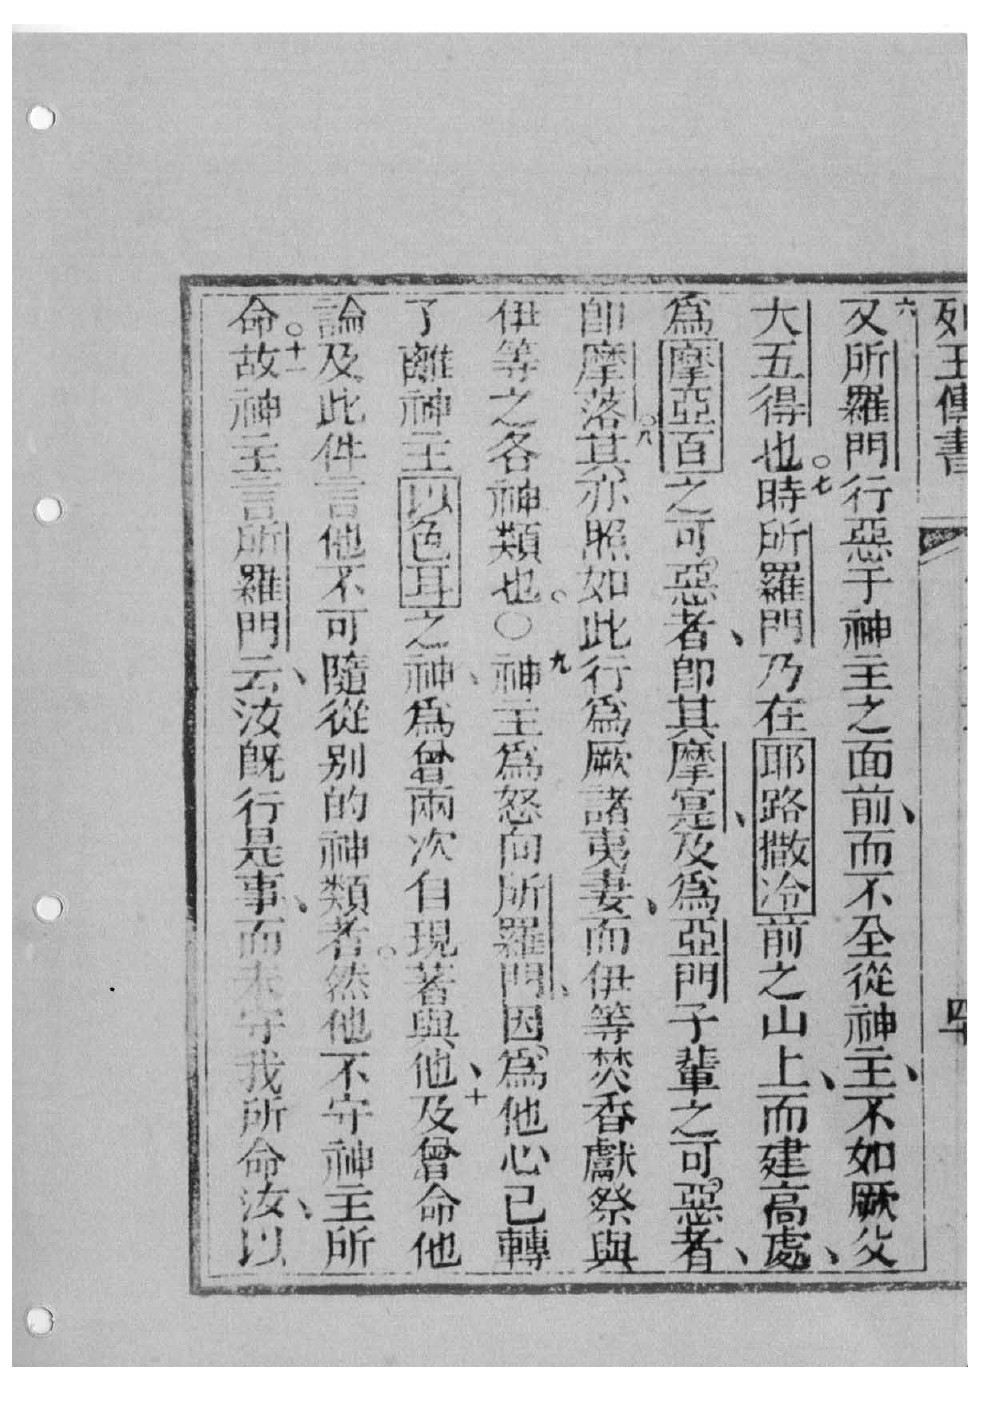 列王傳書 四
六又所羅門行惡于神主之面前、而不全從神主、不如厥父
大五得也。七時所羅門乃在耶路撒冷前之山上、而建高處、
爲摩亞百之可惡者、卽其摩寔、及爲亞門子輩之可惡者、
卽摩落其。八亦照如此行爲厥諸夷妻、而伊等焚香獻祭與
伊等之各神類也。○九神主爲怒向所羅門、因爲他心已轉
了離神主以色耳之神、爲曾兩次自現著與他、十及曾命他
論及此件言他不可隨從别的神類者。然他不守神主所
命。十一故神主言所羅門云、汝旣行是事、而未守我所命汝、以